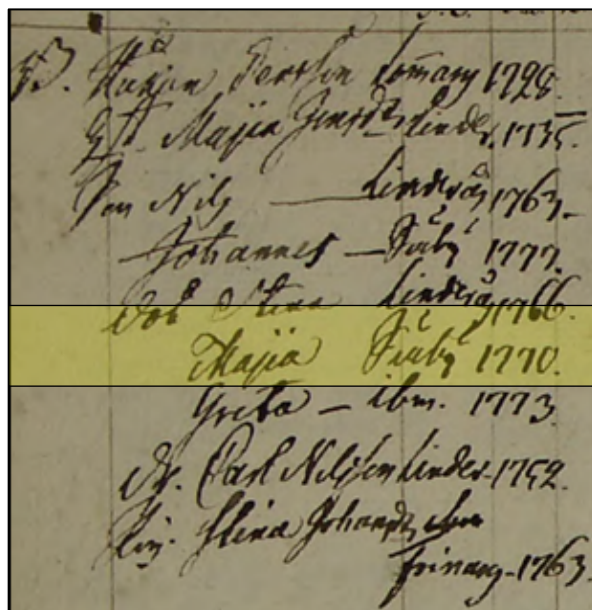 Håkan Persson Lommary 1728.
Maja Linder. 1735.
Son Nils Linderås 1763.
Johannes — Säby 1777.
Dot Stina Linderås 1766.
Maja Säby 1770.
Greta — ibm. 1773.
Dr. Carl Nilsson Linder. 1752.
Pig. Stina
Frinary. 1763.